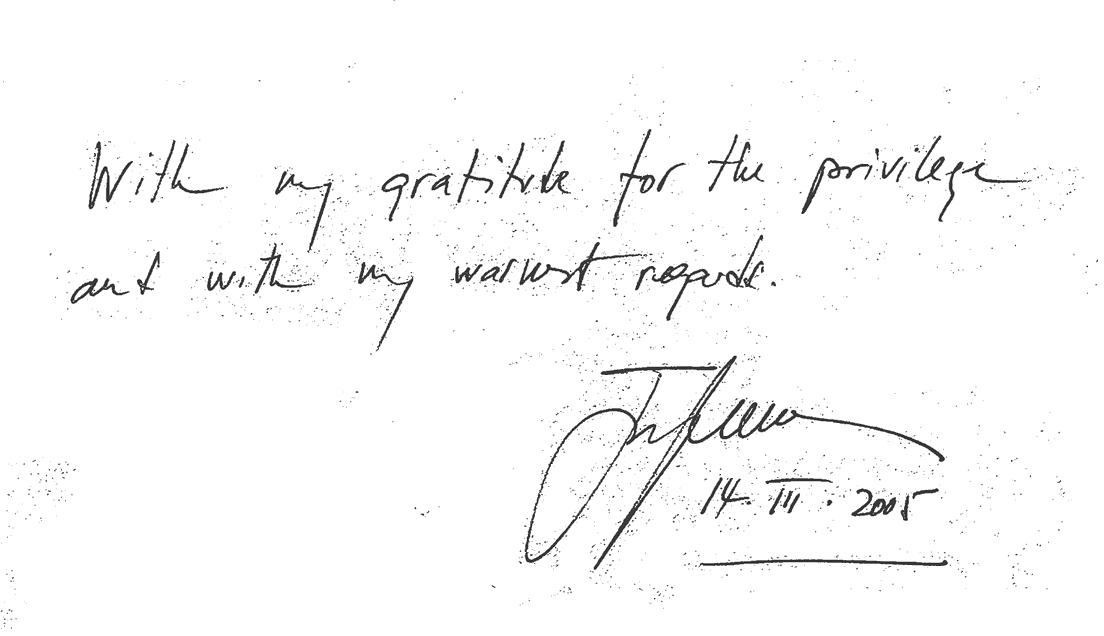 With my gratitude for the privilege
and with my warmest regards.
14. III. 2005